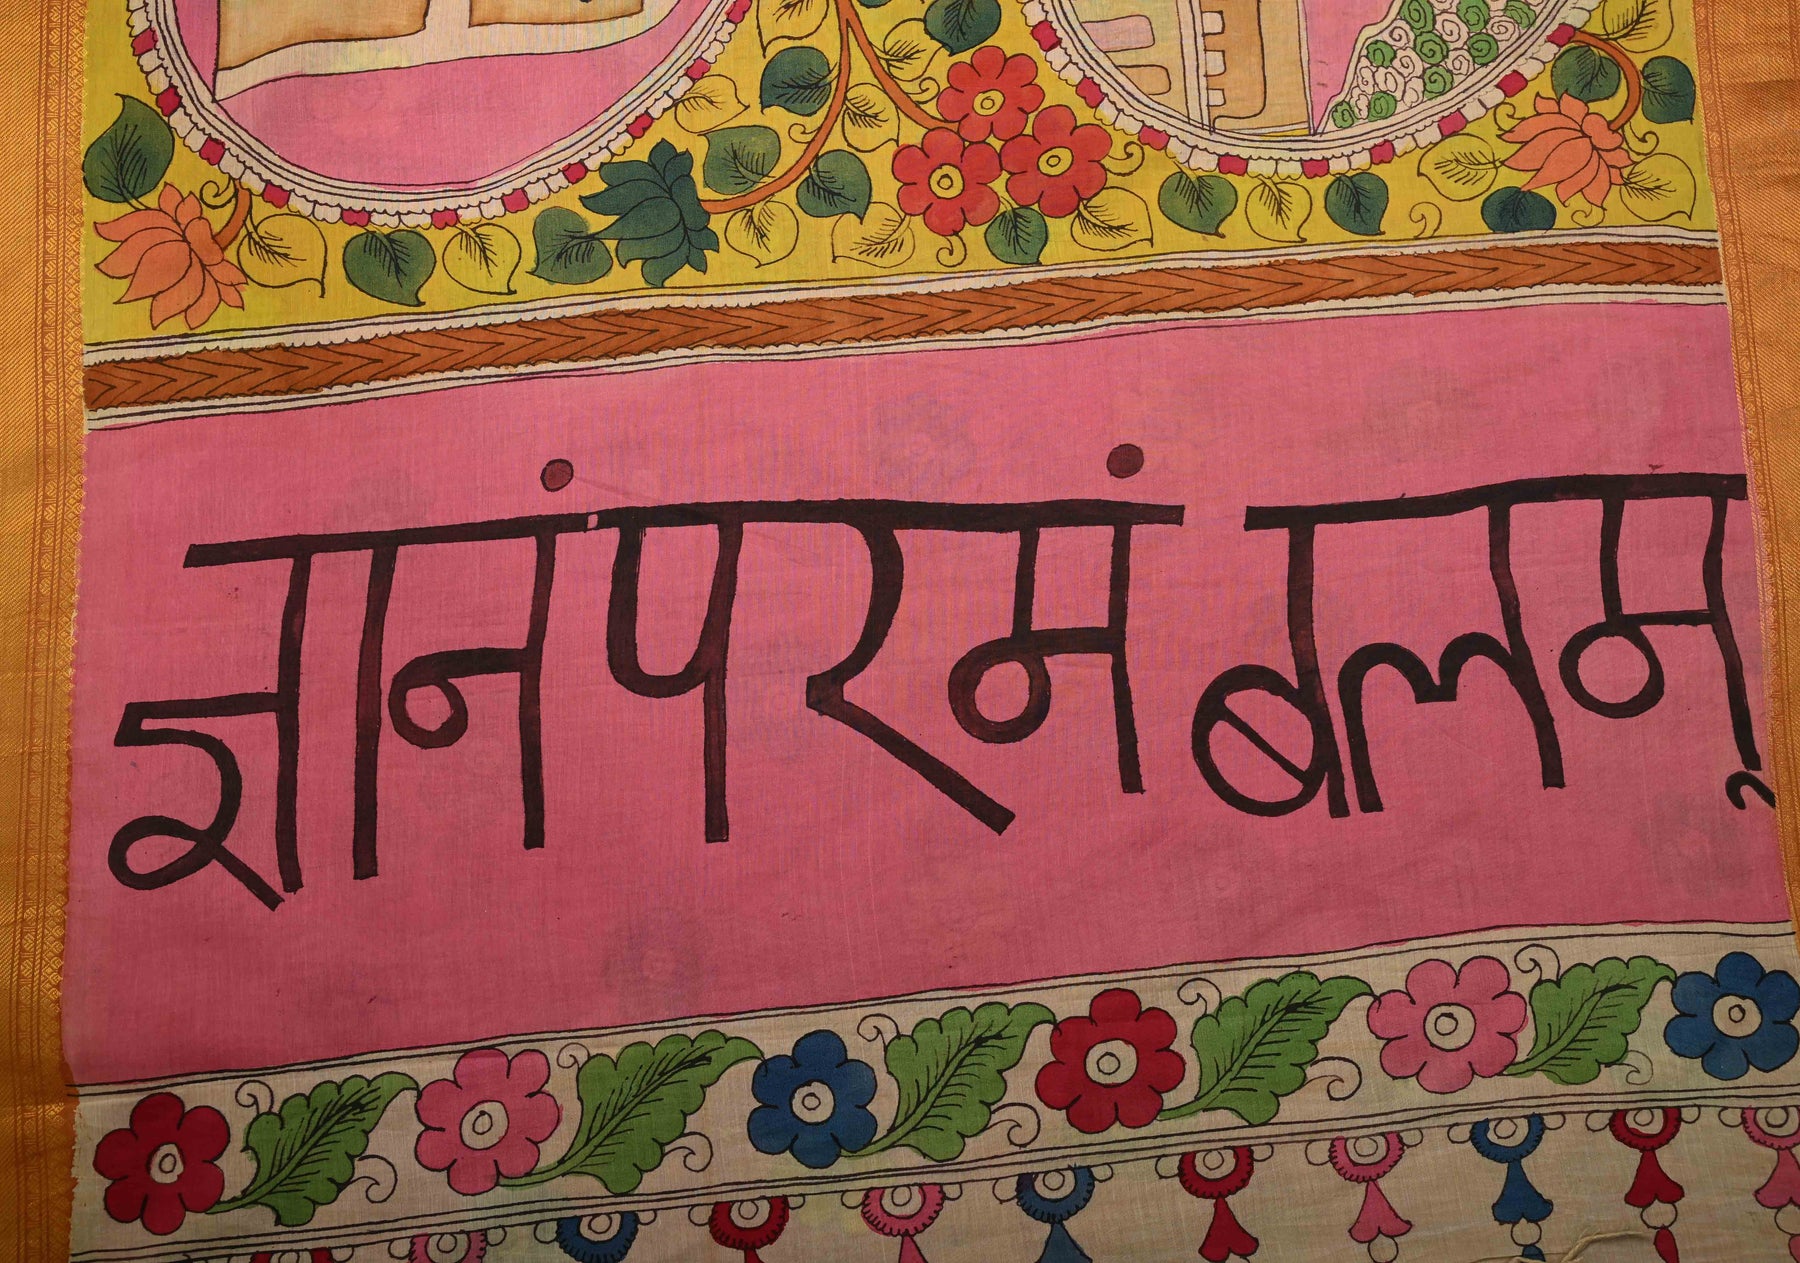 ज्ञानं परमं बलम्